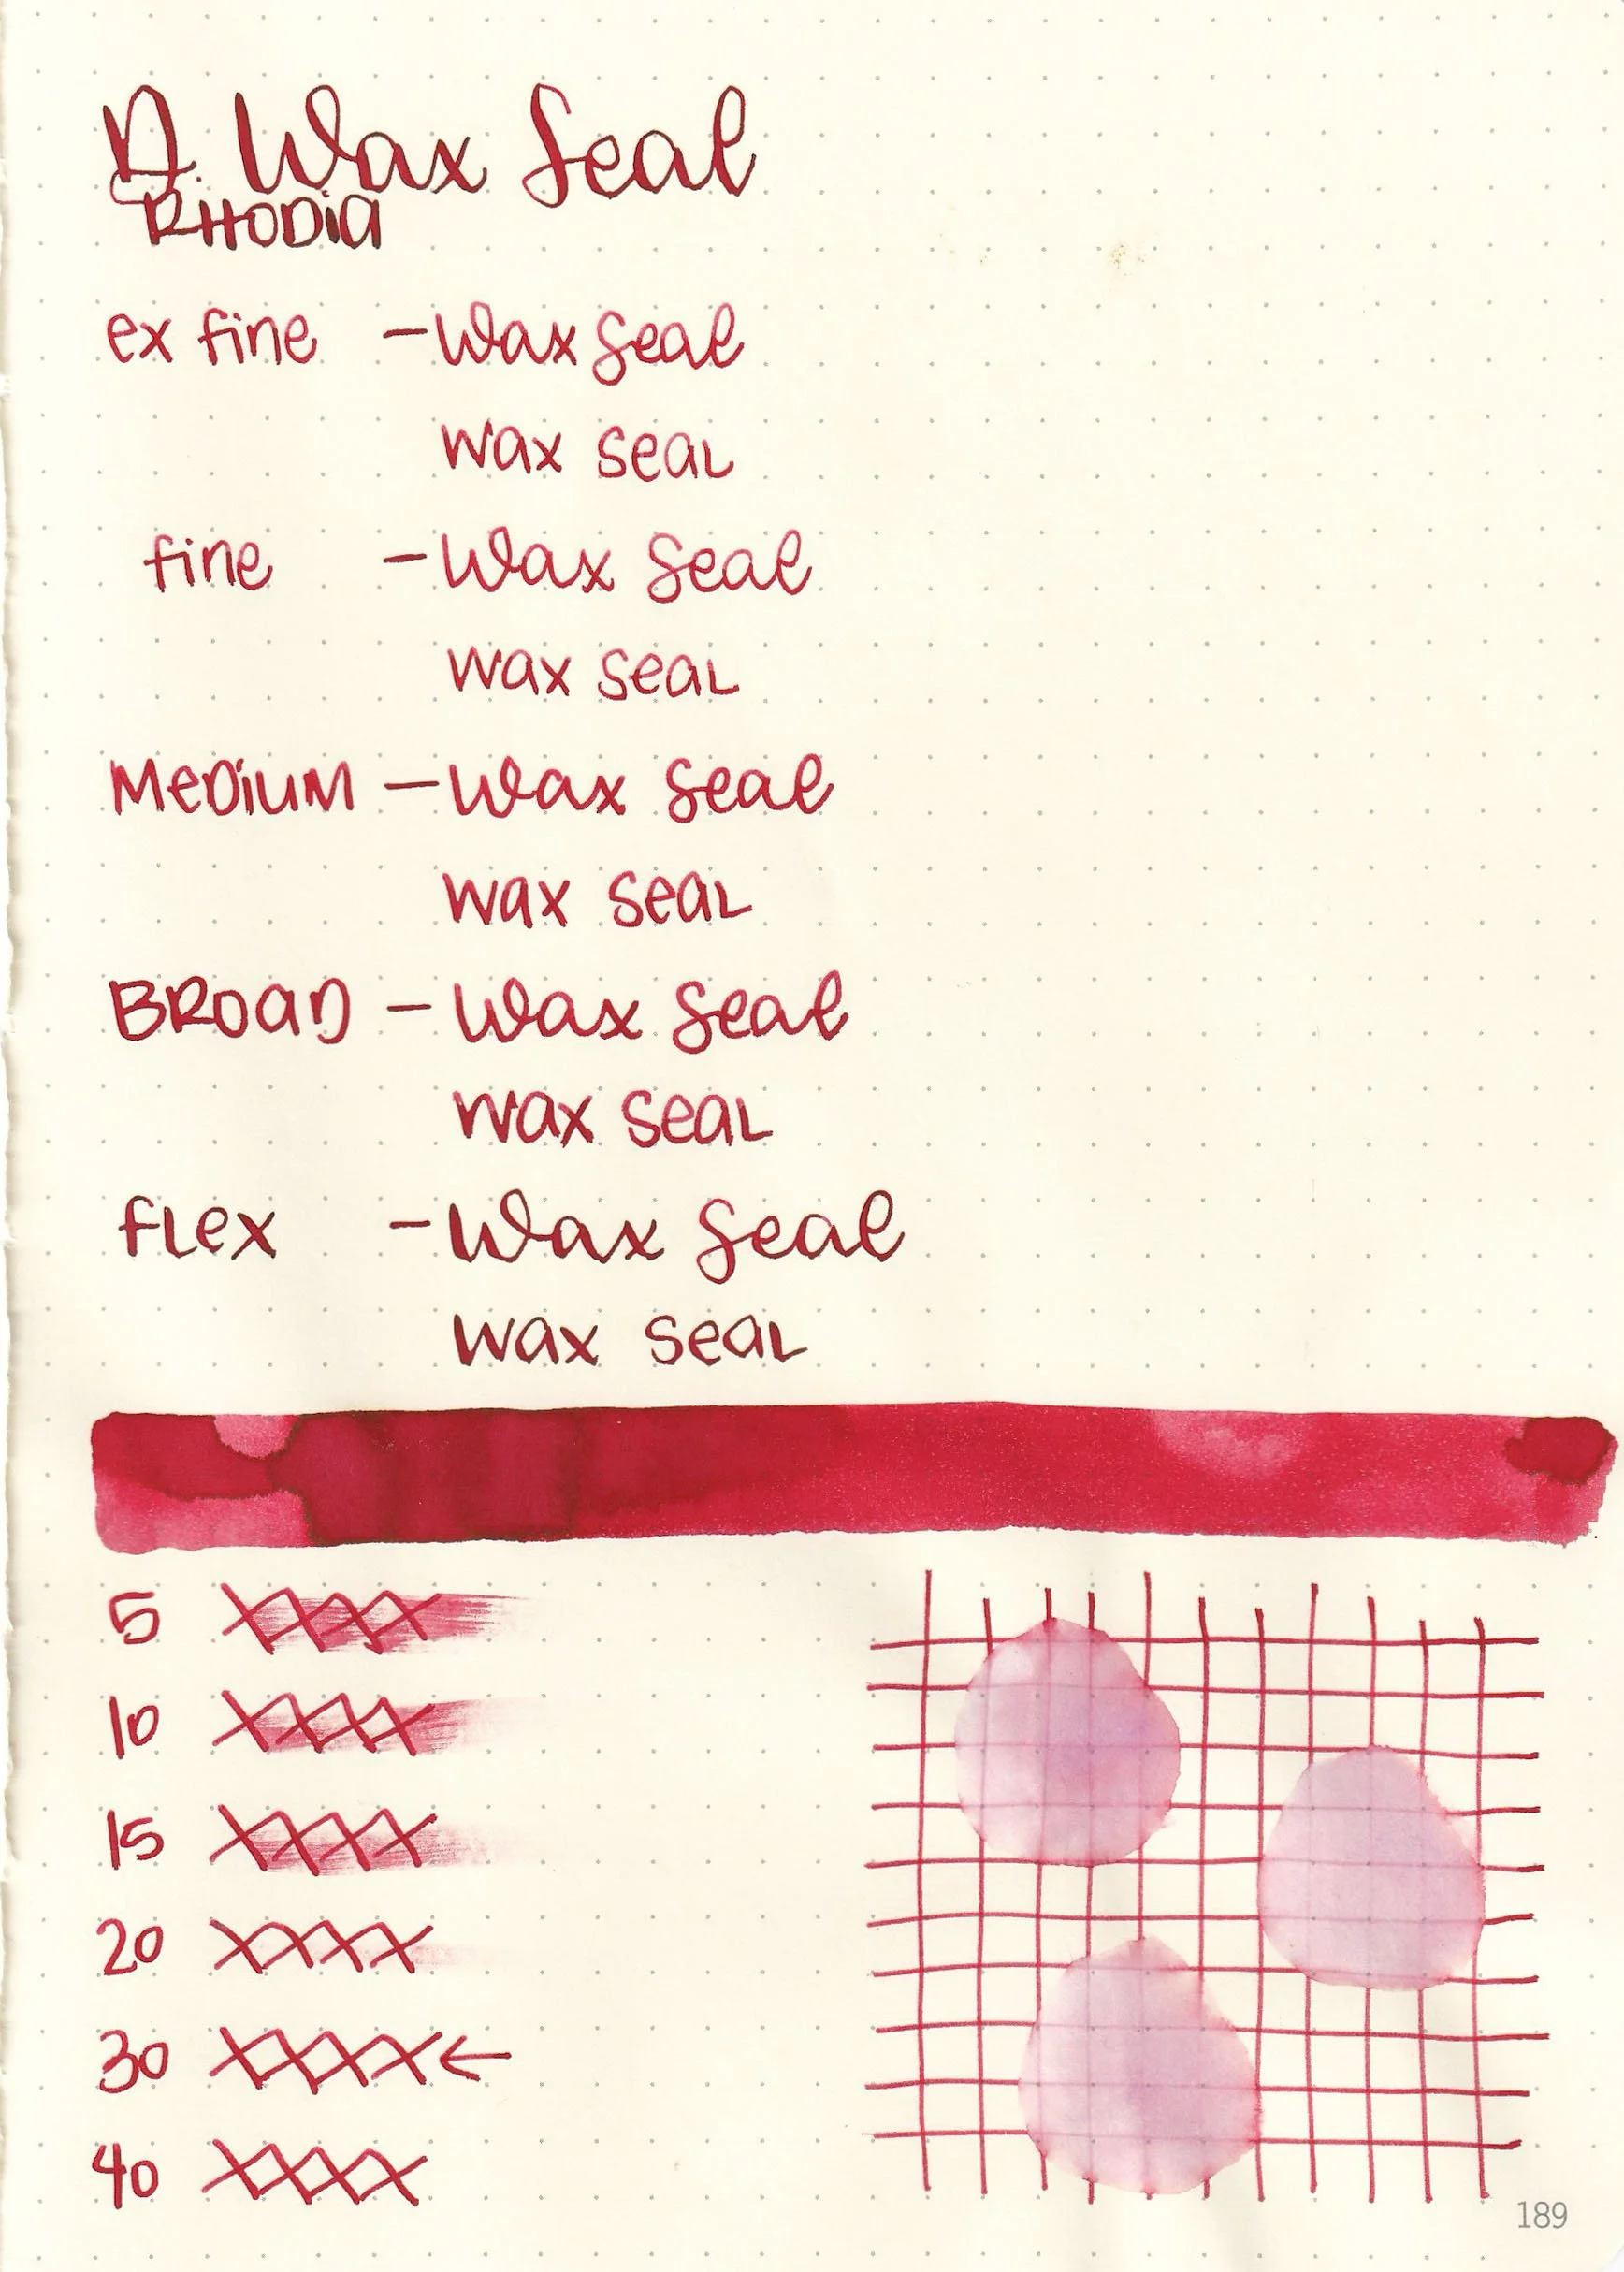 D. Wax Seal
RHODiA
ex fine - Wax Seal
wax seaL
fine - Wax Seal
wax seaL
MeDiUM - Wax Seal
wax seaL
BROaD - Wax Seal
wax seaL
fLex - Wax Seal
wax seaL
5 XXXX
10 XXXX
15 XXXX
20 XXXX
30 XXXX ←
40 XXXX
189